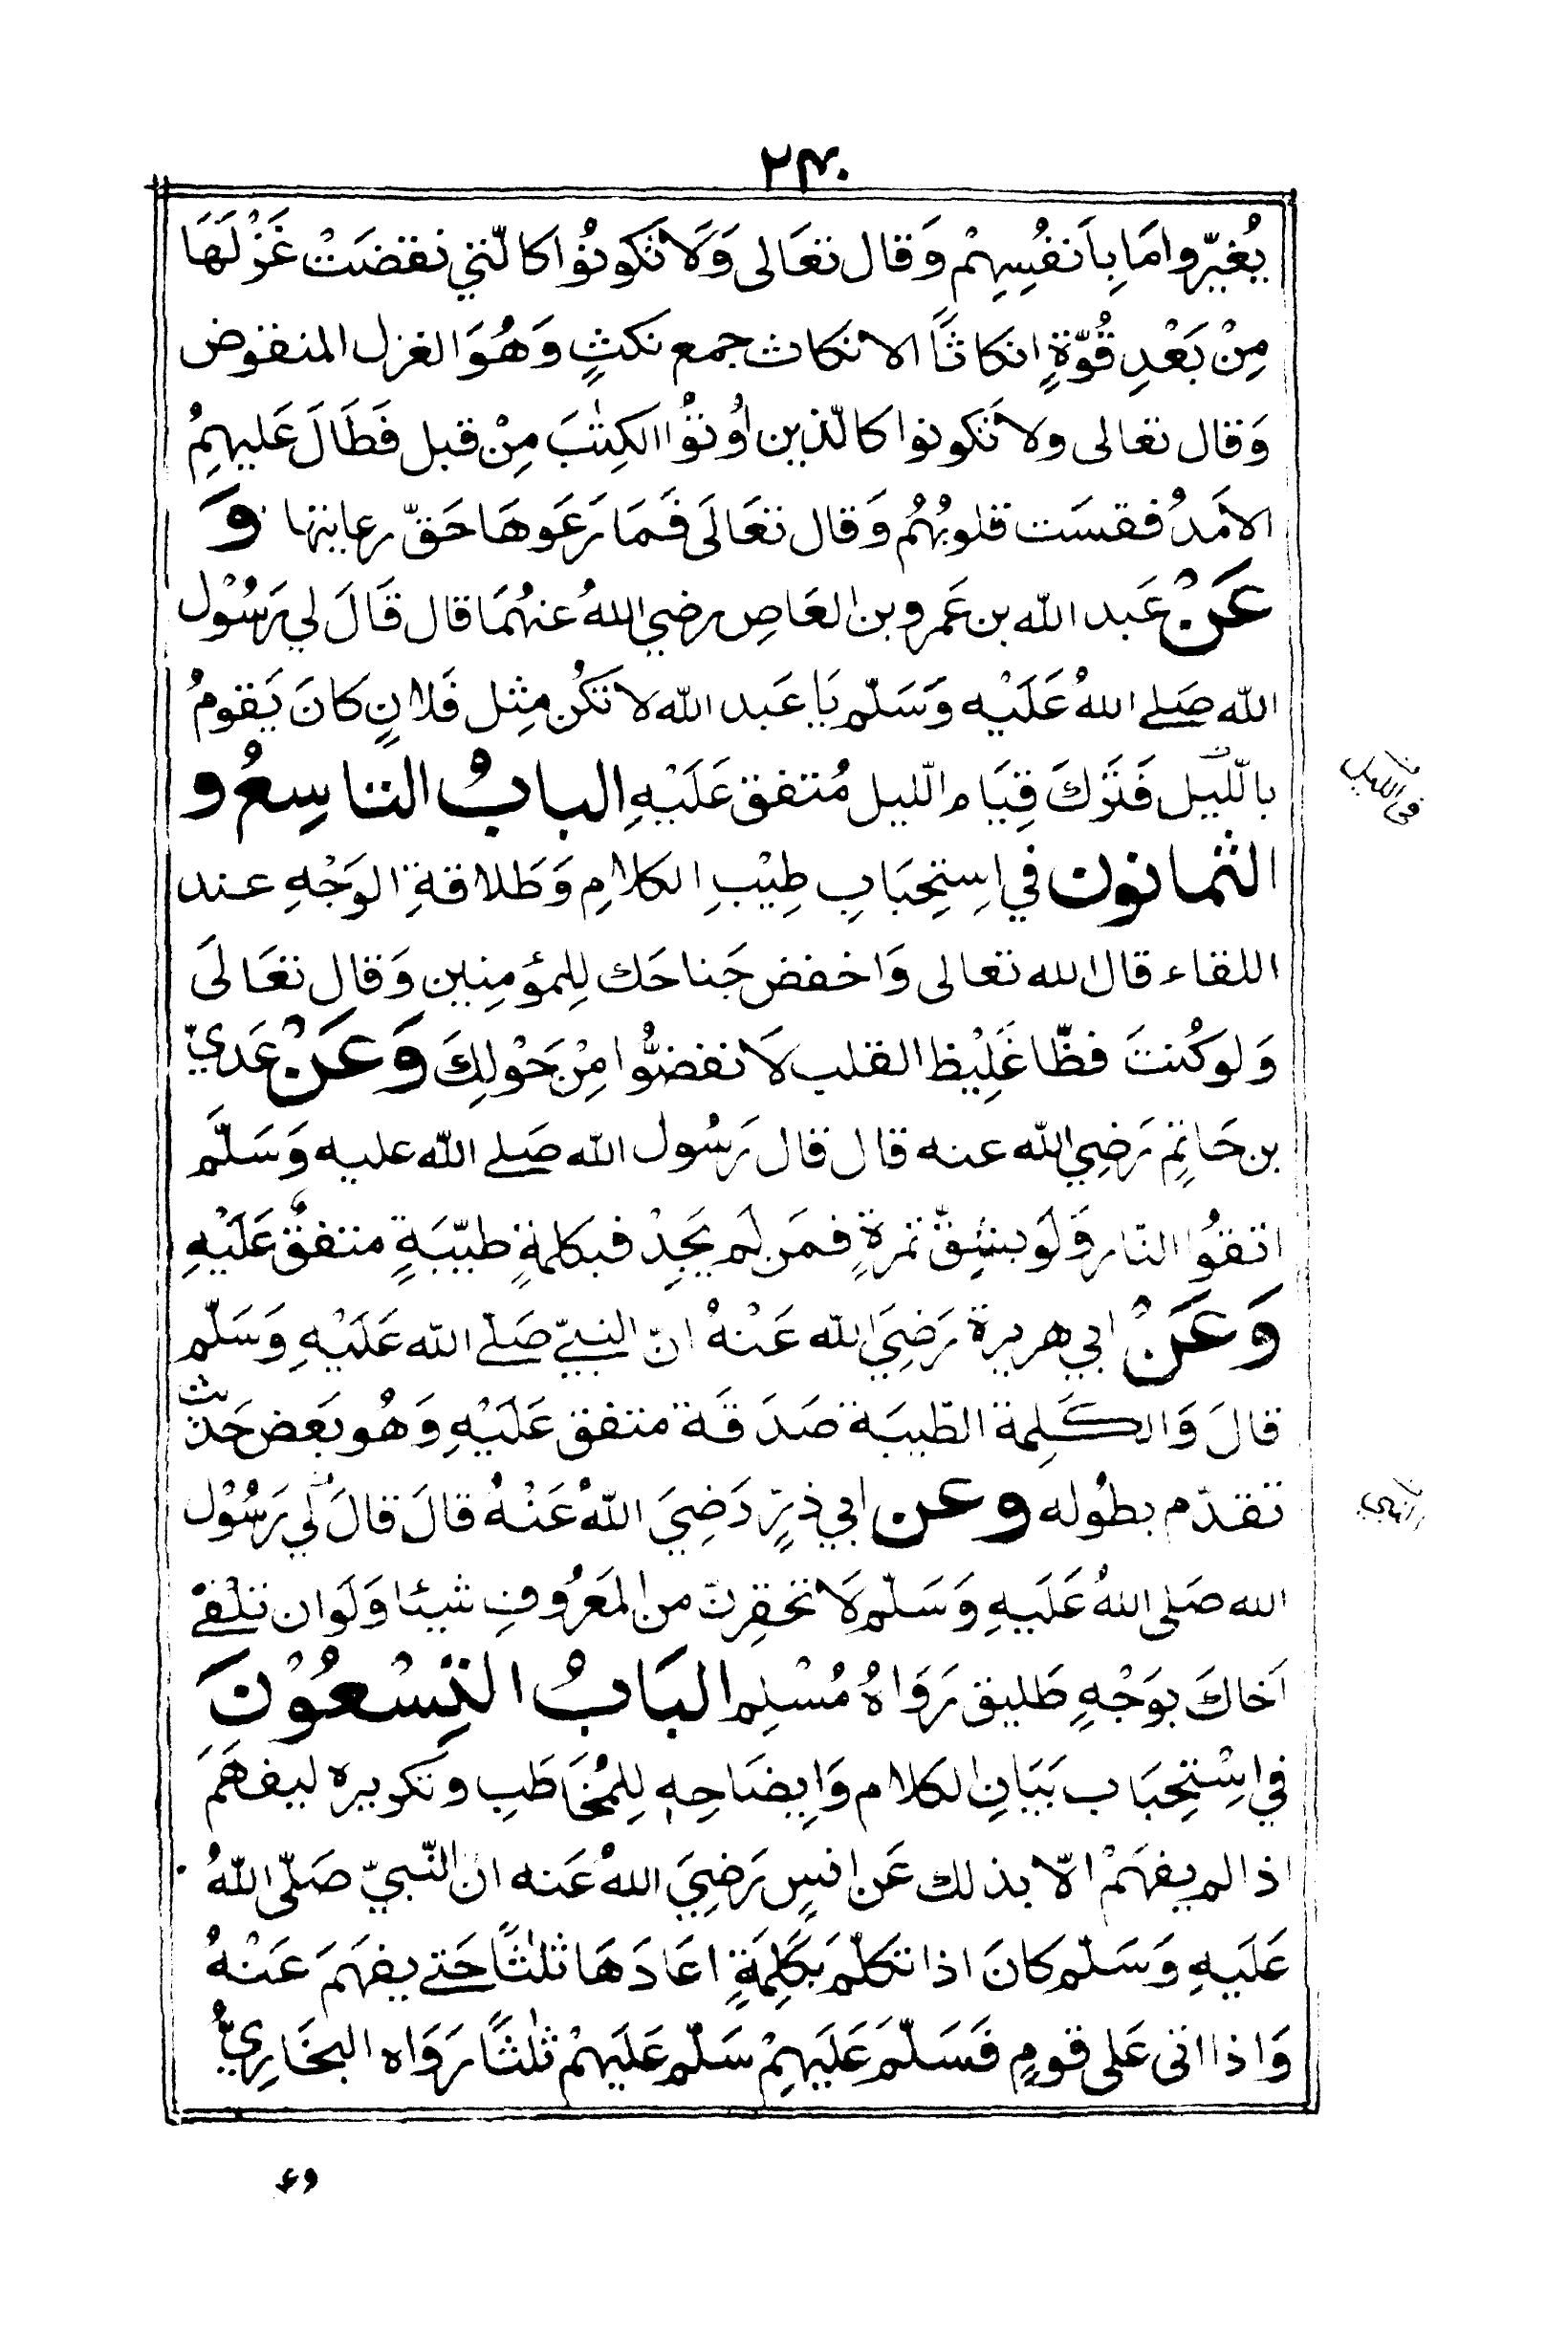 ۲۴۰
يُغيّروا مَا بِاَنفُسِهِمْ وَقال تعَالى وَلَا تَكونُوْا كالّتي نقضَتْ غَزْلَهَا
مِنْ بَعْدِ قُوّةٍ انكاثاً الانكاث جمع نكثٍ وَهُوَ الغزل المنقوض
وَقال تعالى ولا تَكونوا كالّذين اُوْتُوا الكِتٰبَ مِنْ قبل فَطَالَ عَليهِمُ
الاَمَدُ فقسَت قلوبُهُم وَقال تعَالَى فَمَا رَعَوهَا حَقّ رعايتها وَ
عَنْ عَبد الله بن عَمرو بن العَاصِ رضي اللهُ عنهُمَا قال قَالَ لي رَسُوْل
الله صَلے اللهُ عَلَيْه وَسَلّم يَا عَبد الله لا تَكُن مِثِل فَلانٍ كانَ يَقومُ
بالّليل فَتَرَكَ قِيَام الّليل مُتفق عَلَيْهِ البابُ التاسِعُ و
الثمانون في اِستِحِبَابِ طِيْبِ الكلامِ وَطَلاقةِ الوَجْهِ عند
اللقاء قال الله تعالى وَاخفض جَناحَك لِلمؤمِنِين وَقال تعَالَى
وَلو كُنتَ فظّا غَلِيْظ القلب لَانفضُّوا مِنْ حَوْلِكَ وَعَنْ عَديّ
بن حَاتِمٍ رَضِي الله عنه قال قال رَسُول الله صَلے الله عليه وَسَلَّم
اتقوُا النّار وَلَو بشِقّ تمرةٍ فمَن لَم يَجِدْ فبكلمةٍ طيّبَةٍ متفقٌ عَلَيْهِ
وَعَنْ ابي هريرة رَضِيَ الله عَنْهُ انّ النبيّ صَلّے الله عَلَيْهِ وَسَلّم
قالَ وَالكَلِمة الطّيبَة صَدَقَة متفق عَلَيْهِ وَهُو بَعَض حَديث
تقدّم بطُوله وعن ابي ذرٍّ رَضِيَ اللهُ عَنْهُ قالَ قالَ لي رَسُوْل
الله صَلى اللهُ عَلَيهِ وَسَلّم لَا تحقِرنّ من المَعرُوفِ شيئا وَلَو ان تلْقےٰ
اَخاكَ بوَجْهٍ طَليق رَوَاهُ مُسْلِم البَابُ التِّسْعُوْنَ
في اِسْتِحِبَاب بَيَانِ الكلام وَاِيضَاحِهٖ لِلمُخَاطَبِ وتكريره ليفهَمَ
اذا لم يفهَمْ الّا بذلك عَن انسٍ رَضِيَ اللهُ عَنه انّ النّبيّ صَلّى اللهُ
عَلَيهِ وَسَلّم كانَ اذا تكلّمَ بكَلِمَةٍ اعَادَهَا ثلٰثًا حَتے يفهَمَ عَنْهُ
وَاذا اتى عَلى قومٍ فَسَلّمَ عَلَيهِمْ سَلّم عَلَيهِمْ ثلٰثًا رَوَاه البخَارِيُّ
في الليل